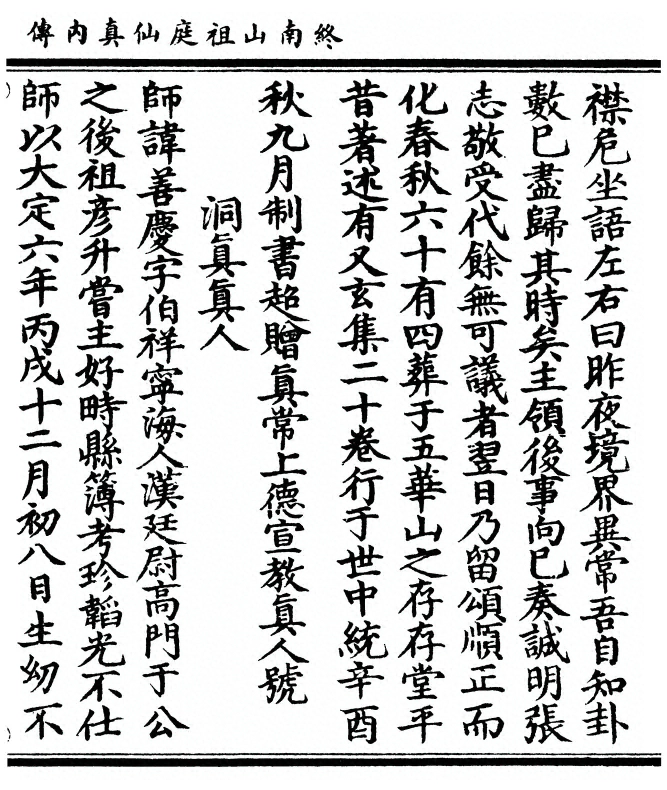 終南山祖庭仙真內傳
襟危坐語左右曰昨夜境界異常吾自知卦
數巳盡歸其時矣主領後事向巳奏誠明張
志敬受代餘無可議者翌日乃留頌順正而
化春秋六十有四葬于五華山之存存堂平
昔著述有又玄集二十卷行于世中統辛酉
秋九月制書超贈眞常上德宣教眞人號
洞眞眞人
師諱善慶字伯祥寧海人漢廷尉高門于公
之後祖彥升嘗主好畤縣簿考珍韜光不仕
師以大定六年丙戌十二月初八日生幼不